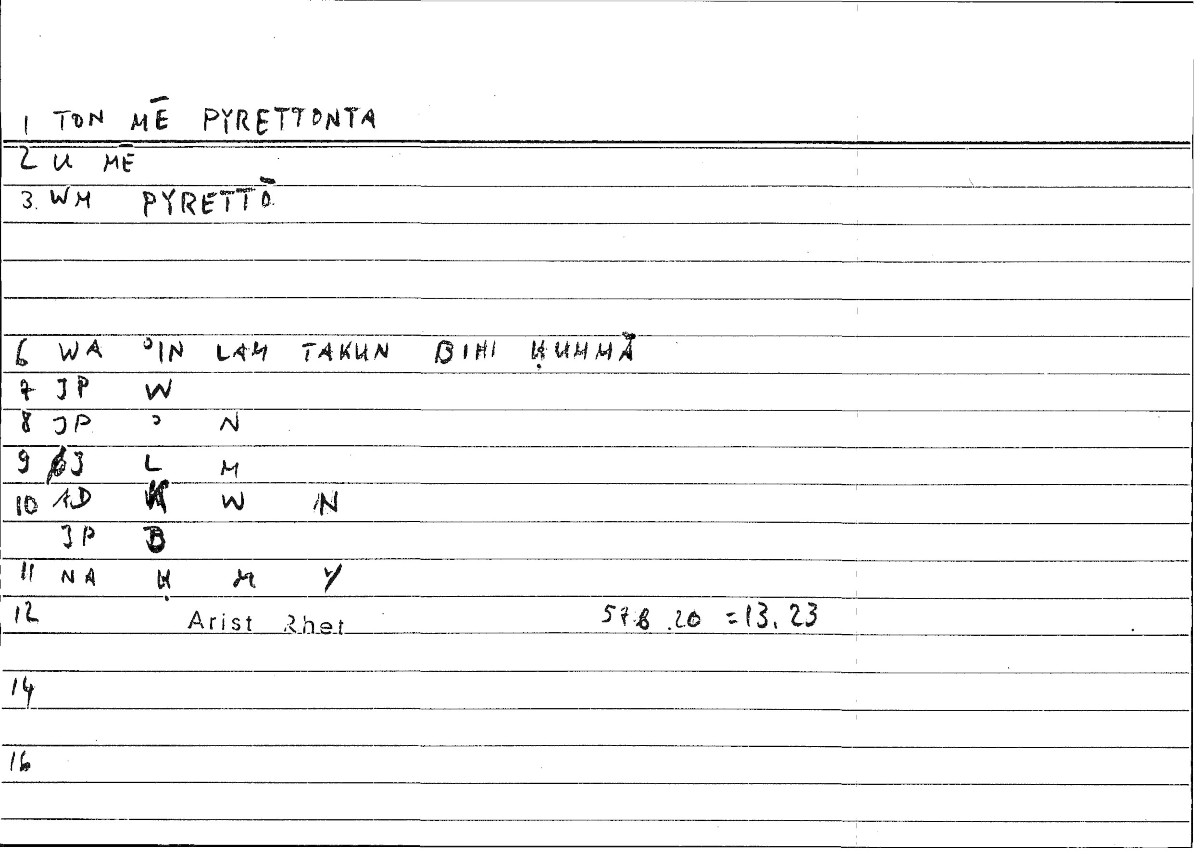 1 TON MĒ PYRETTONTA
2 U MĒ
3. WM PYRETTŌ
6 WA ʾIN LAM TAKUN BIHI ḤUMMĀ
7 JP W
8 JP ʾ N
9 J L M
10 AD K W N
JP B
11 NA Ḥ M Y
12 Arist Rhet 57b.20 =13.23
14
16